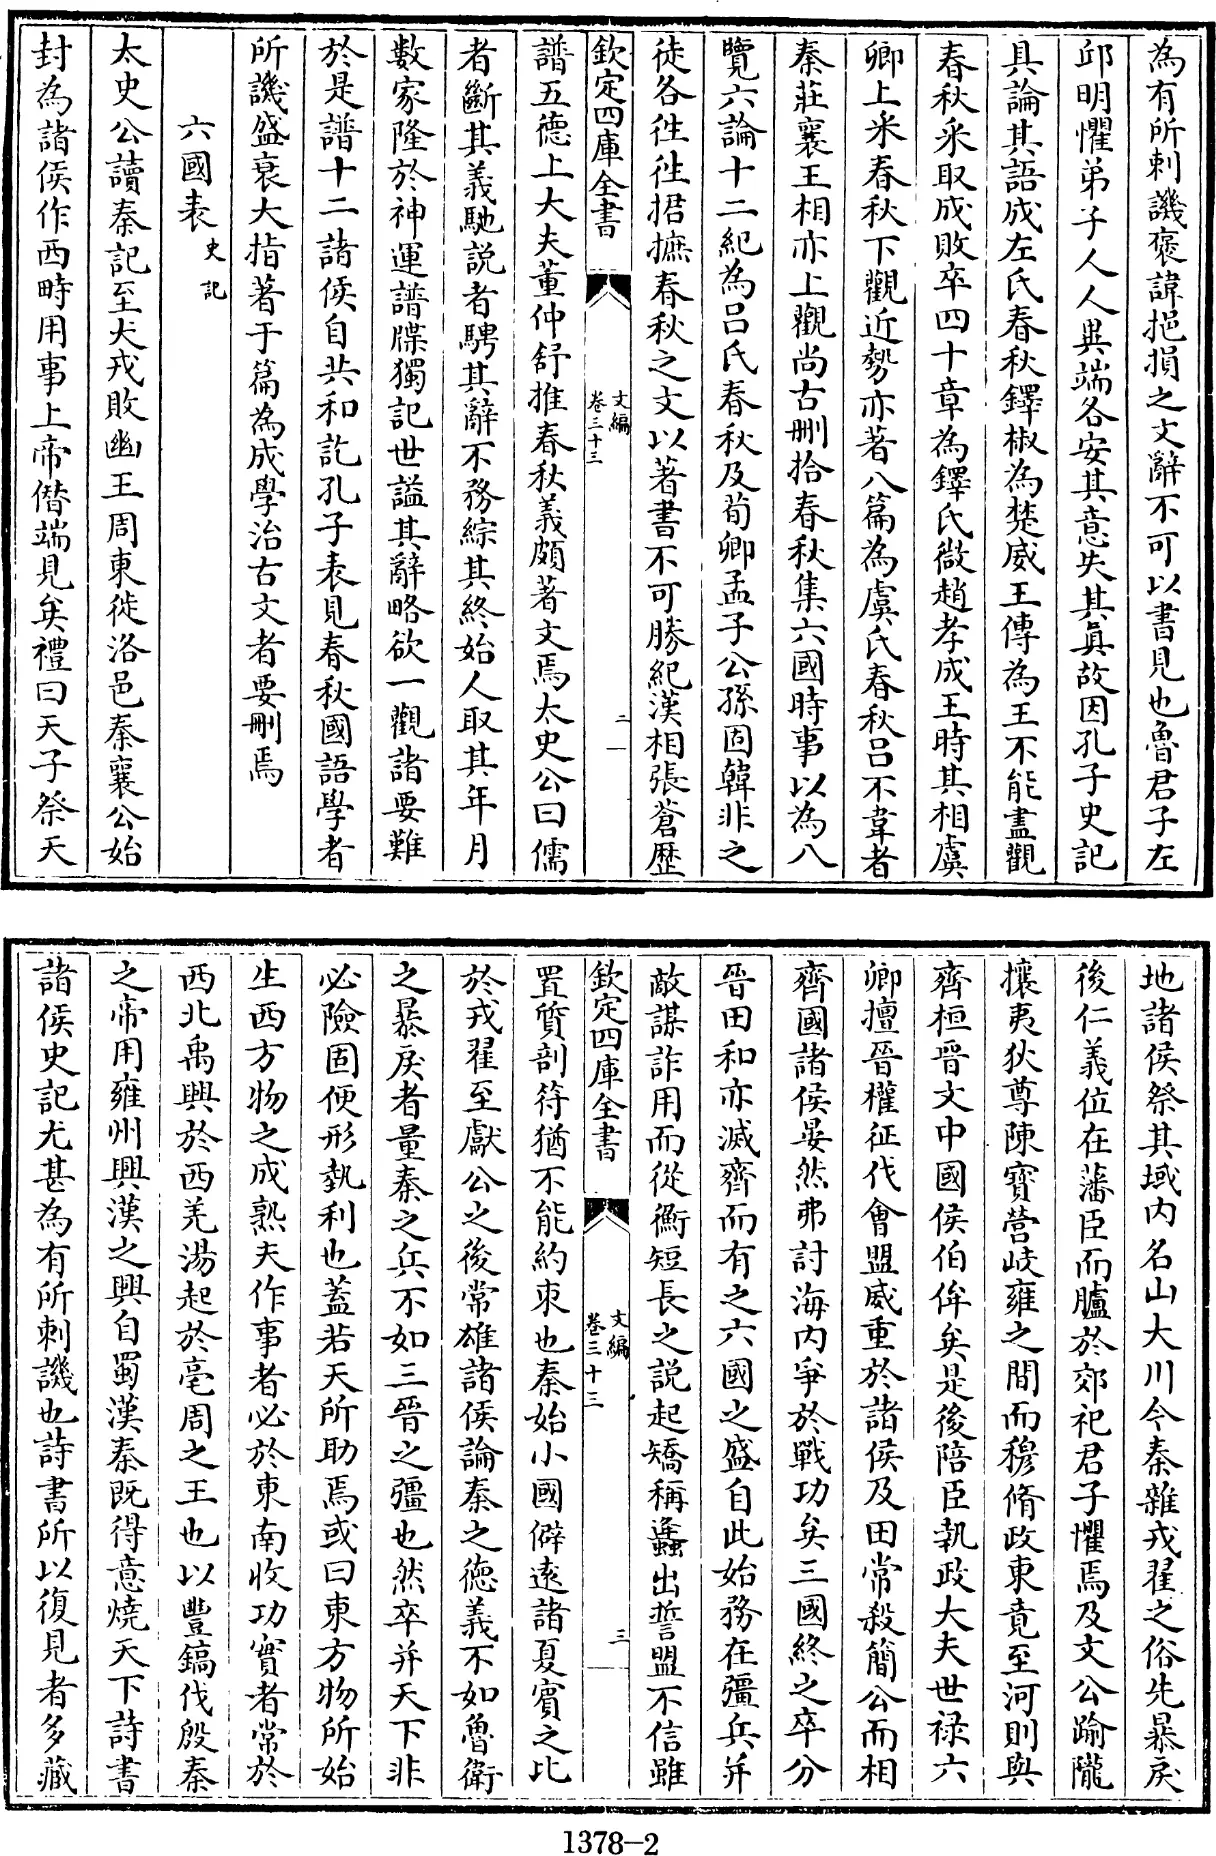 為有所刺譏褒諱挹損之文辭不可以書見也魯君子左
邱明懼弟子人人異端各安其意失其真故因孔子史記
具論其語成左氏春秋鐸椒為楚威王傳為王不能盡觀
春秋采取成敗卒四十章為鐸氏微趙孝成王時其相虞
卿上采春秋下觀近勢亦著八篇為虞氏春秋呂不韋者
秦莊襄王相亦上觀尚古刪拾春秋集六國時事以為八
覽六論十二紀為呂氏春秋及荀卿孟子公孫固韓非之
徒各往往捃摭春秋之文以著書不可勝紀漢相張蒼歷
欽定四庫全書
文編
卷三十三
二
譜五德上大夫董仲舒推春秋義頗著文焉太史公曰儒
者斷其義馳説者騁其辭不務綜其終始人取其年月
數家隆於神運譜牒獨記世謚其辭略欲一觀諸要難
於是譜十二諸侯自共和訖孔子表見春秋國語學者
所譏盛衰大指著于篇為成學治古文者要刪焉
六國表史記
太史公讀秦記至犬戎敗幽王周東徙洛邑秦襄公始
封為諸侯作西畤用事上帝僭端見矣禮曰天子祭天
地諸侯祭其域内名山大川今秦雜戎翟之俗先暴戾
後仁義位在藩臣而臚於郊祀君子懼焉及文公踰隴
攘夷狄尊陳寶營岐雍之間而穆脩政東竟至河則與
齊桓晉文中國侯伯侔矣是後陪臣執政大夫世禄六
卿擅晉權征伐會盟威重於諸侯及田常殺簡公而相
齊國諸侯晏然弗討海内爭於戰功矣三國終之卒分
晉田和亦滅齊而有之六國之盛自此始務在彊兵并
敵謀詐用而從衡短長之説起矯稱蠭出誓盟不信雖
欽定四庫全書
文編
卷三十三
三
置質剖符猶不能約束也秦始小國僻逺諸夏賓之比
於戎翟至獻公之後常雄諸侯論秦之德義不如魯衛
之暴戾者量秦之兵不如三晉之彊也然卒并天下非
必險固便形埶利也蓋若天所助焉或曰東方物所始
生西方物之成熟夫作事者必於東南收功實者常於
西北禹興於西羌湯起於亳周之王也以豐鎬伐殷秦
之帝用雍州興漢之興自蜀漢秦既得意燒天下詩書
諸侯史記尤甚為有所刺譏也詩書所以復見者多藏
1378—2